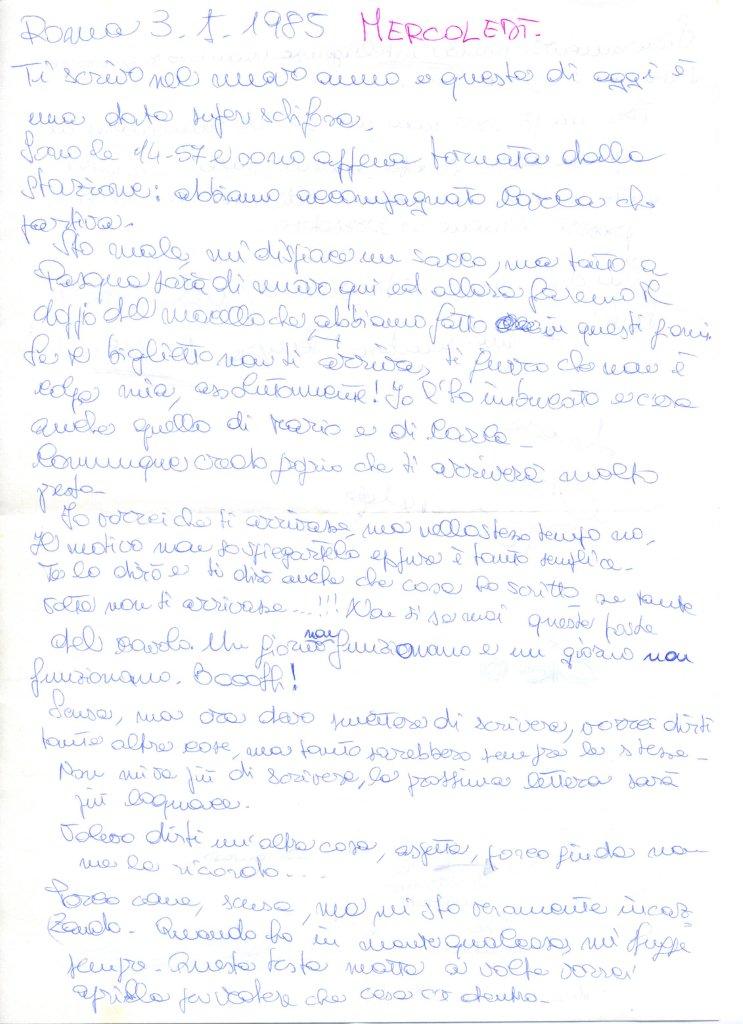 Roma 3-1-1985 MERCOLEDÌ-
Ti scrivo nel nuovo anno e questa di oggi è
una data super schifosa.
Sono le 14-57 e sono appena tornata dalla
stazione: abbiamo accompagnato Carla che
partiva-
Sto male, mi dispiace un sacco, ma tanto a
Pasqua sarà di nuovo qui ed allora faremo il
doppio del macello che abbiamo fatto in questi giorni.
Se il biglietto non ti arriva, ti giuro che non è
colpa mia, assolutamente! Io l'ho imbucato e c'era
anche quello di Mario e di Carla-
Comunque credo proprio che ti arriverà molto
presto-
Io vorrei che ti arrivasse, ma nello stesso tempo no,
Il motivo non so spiegartelo eppure è tanto semplice-
Te lo dirò e ti dirò anche che cosa ho scritto se tante
volte non ti arrivasse...!!! Non si sa mai queste poste
del cavolo. Un giorno non funzionano e un giorno non
funzionano. Boooh!
Scusa, ma ora devo smettere di scrivere, vorrei dirti
tante altre cose, ma tanto sarebbero sempre le stesse-
Non mi va più di scrivere, la prossima lettera sarà
più loquace.
Volevo dirti un'altra cosa, aspetta, porco giuda non
me la ricordo....
Porco cane, scusa, ma mi sto veramente incaz
zando- Quando ho in mente qualcosa, mi sfugge
sempre- Questa testa matta a volte vorrei
aprirla per vedere che cosa c'è dentro-